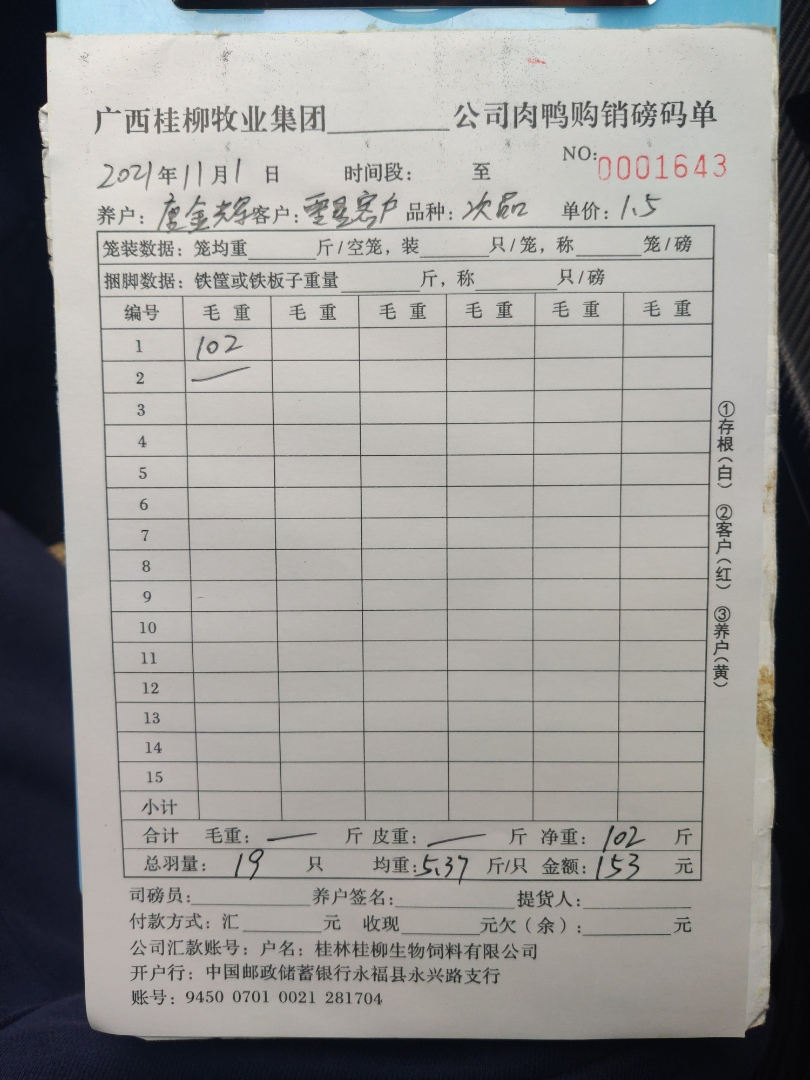 广西桂柳牧业集团________公司肉鸭购销磅码单
NO:0001643
2021年11月1日 时间段: 至
养户:唐金辉 客户:零星客户 品种:次品 单价:1.5
笼装数据:笼均重______斤/空笼,装______只/笼,称______笼/磅
捆脚数据:铁筐或铁板子重量______斤,称______只/磅
编号 毛重 毛重 毛重 毛重 毛重 毛重
1 102
2 —
3
4
5
6
7
8
9
10
11
12
13
14
15
小计
合计 毛重:— 斤 皮重:— 斤 净重:102 斤
总羽量:19 只 均重:5.37 斤/只 金额:153 元
司磅员:________养户签名:________提货人:________
付款方式:汇______元 收现______元欠(余):______元
公司汇款账号:户名:桂林桂柳生物饲料有限公司
开户行:中国邮政储蓄银行永福县永兴路支行
账号:9450 0701 0021 281704
①存根(白) ②客户(红) ③养户(黄)